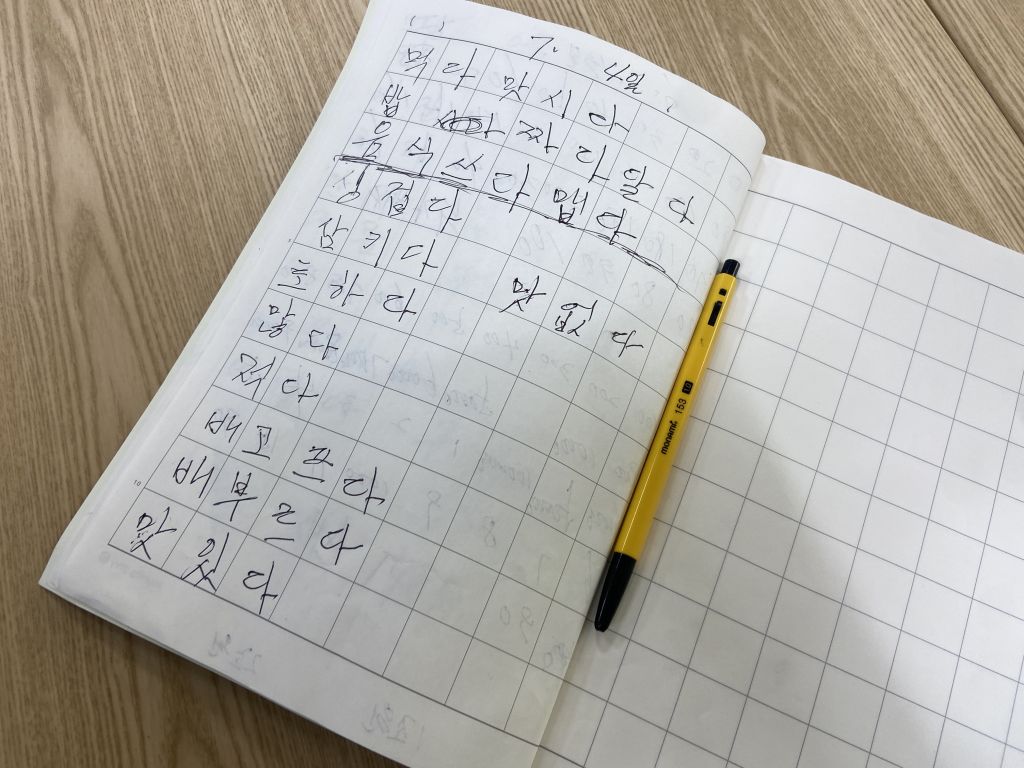 7. 4일
먹다 맛시다
밥 짜다 달다
음식 쓰다 맵다
싱겁다
삼키다
맛없다
토하다
많다
적다
배고프다
배부르다
맛있다
10
monami 153